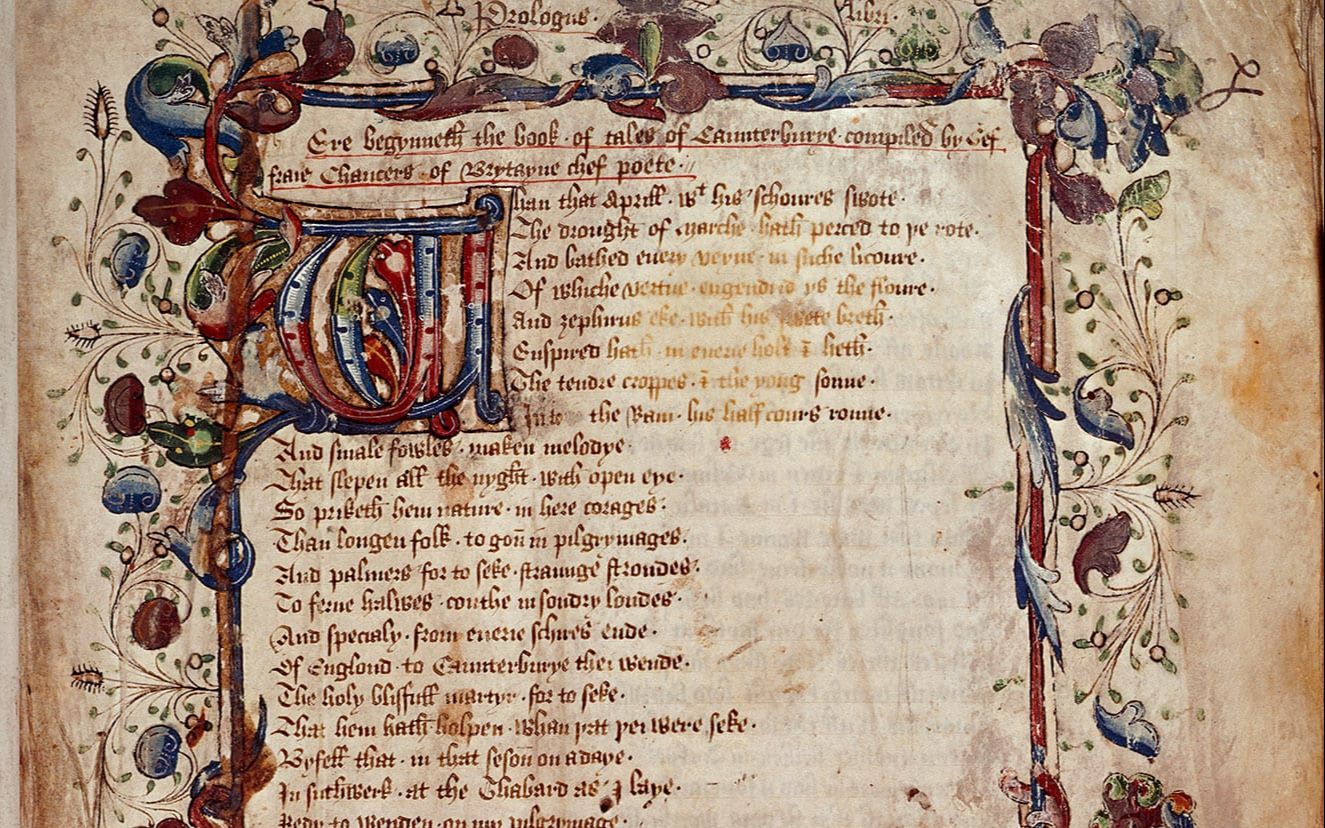 Prologus · libri ·
Ere begynneth the book · of tales of Caunterburye · compiled by Gef
fraie Chaucers · of Brytayne chef poete ·
Whan that Aprill · wt his schoures swote ·
The drought of marche hath perced to þe rote ·
And bathed euery veyne · in suche licoure ·
Of whiche vertue · engendrid ys the floure ·
And zephirus eke · with his swete breth ·
Enspired hath · in euerie holt & heth ·
The tendre croppes · & the yong sonne ·
Into the Ram · his half cours ronne ·
And smale fowles · maken melodye ·
That slepen all the nyght · with open eye ·
So priketh hem nature · in here corages ·
Than longen folk · to gon in pilgrymages ·
And palmers for to seke · straunge strondes ·
To ferne halwes · couthe in sondry londes ·
And specialy · from euerie schires ende ·
Of Englond · to Caunterburye thei wende ·
The holy blisfull martyr · for to seke ·
That hem hath holpen · whan þat þei were seke ·
Byfell that · in that seson on a daye ·
In suthwerk · at the Thabard as I laye ·
Redy to wenden · on my pilgrymage ·